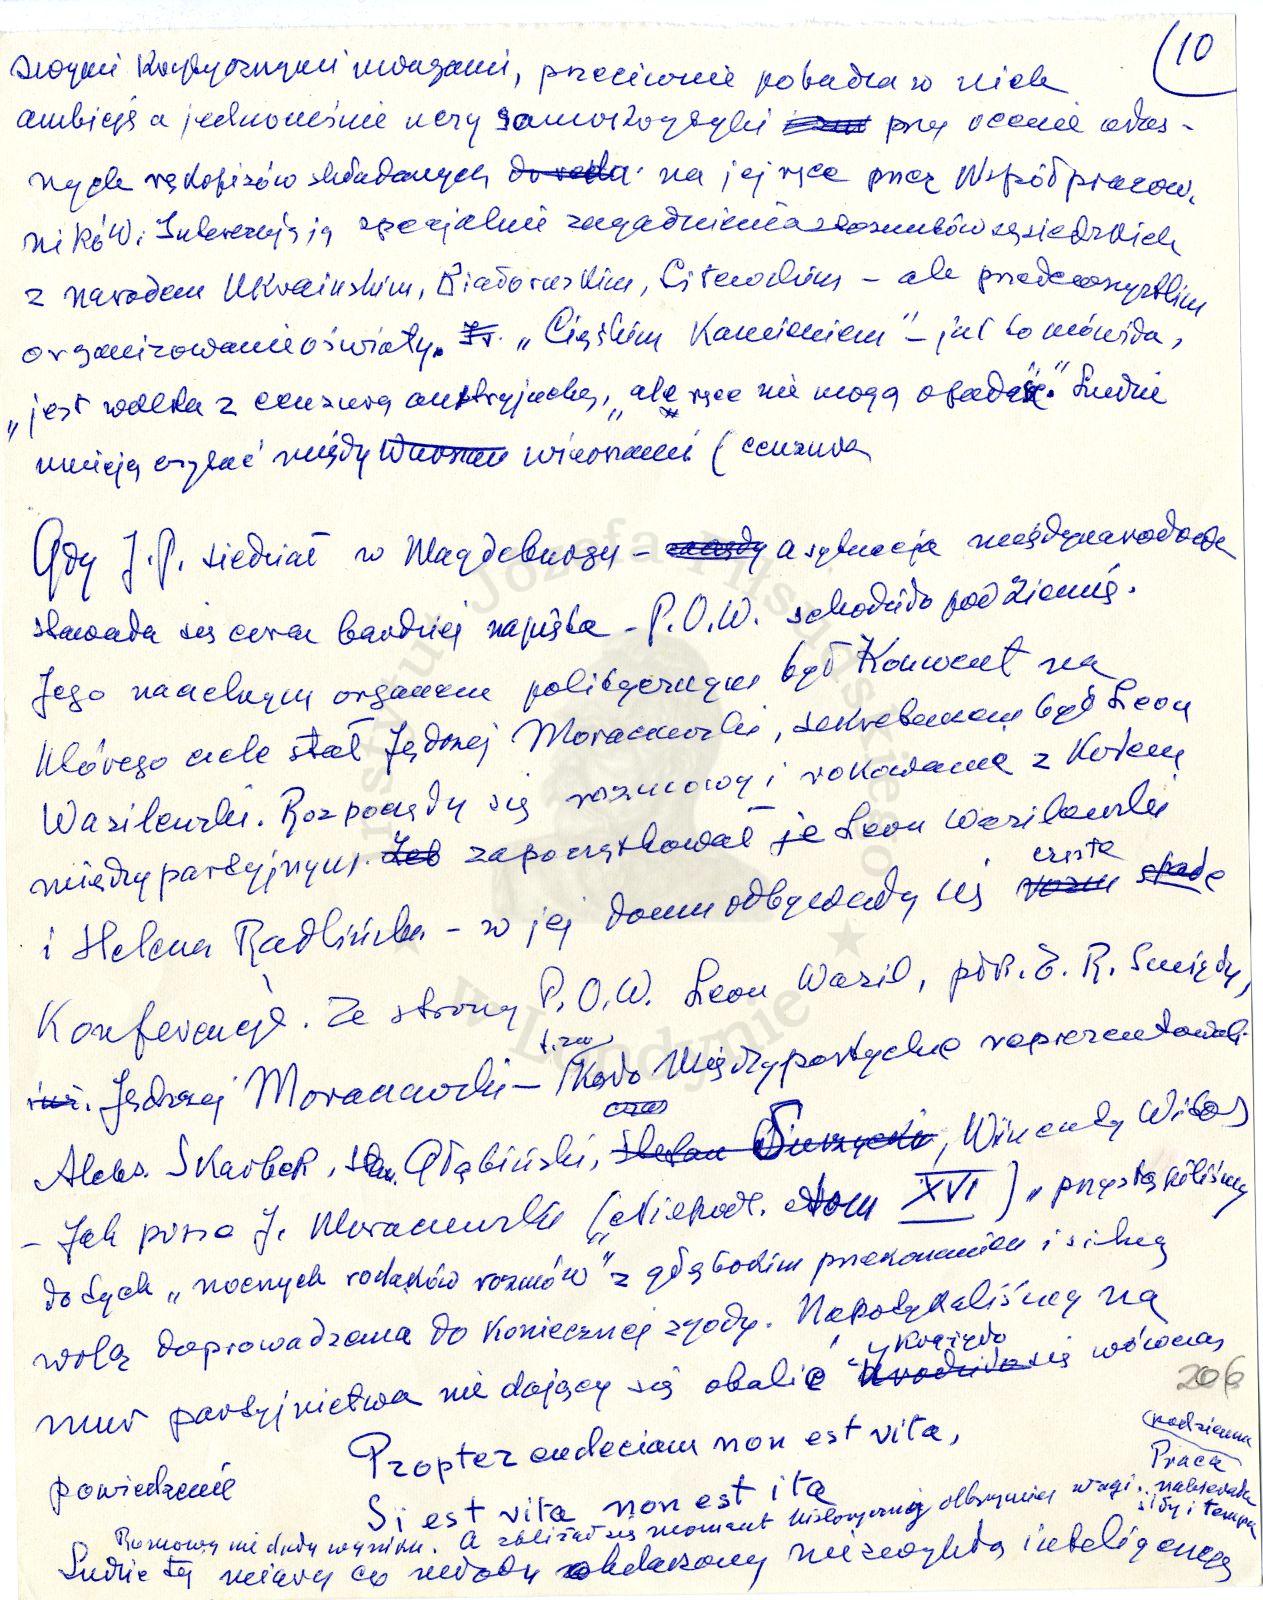 (10
swymi krytycznymi uwagami, przeciwnie pobudza w nich
ambicję a jednocześnie uczy samokrytyki przy ocenie włas-
nych rękopisów składanych do reda na jej ręce przez Współpracow.
ników. Interesują ją specjalnie zagadnienia stosunków sąsiedzkich
z narodem Ukraińskim, Białoruskim, Litewskim – ale przedewszystkim
organizowanie oświaty. „Ciężkim Kamieniem" – jak to mówiła,
„jest walka z cenzurą austryjacką, „ale ręce nie mogą opadać." Ludzie
umieją czytać między wierszami (cenzura
Gdy J.P. siedział w Magdeburgu – a sytuacja międzynarodowa
stawała się coraz bardziej napięta – P.O.W. schodziło pod ziemię.
Jego naczelnym organem politycznym był Konwent na
którego czele stał Jędrzej Moraczewski, sekretarzem był Leon
Wasilewski. Rozpoczęły się rozmowy i rokowania z Kołem
międzypartyjnym. zapoczątkował je Leon Wasilewski
i Helena Radlińska – w jej domu odbywały się częste
Konferencje. Ze strony P.O.W. Leon Wasil, płk. E. R. Śmigły,
inż. Jędrzej Moraczewski – t.zw Koło Międzypartyjne reprezentowali
Aleks. Skarbek, Stan. Głąbiński, Stefan, Wincenty Witos
– Jak pisze J. Moraczewski (Niepodl. tom XVI) „przystąpiliśmy
do tych „nocnych rodaków rozmów" z głębokim przekonaniem i silną
wolą doprowadzenia do koniecznej zgody. Napotykaliśmy na
mur partyjnictwa nie dający się obalić „Krążyło wówczas
206
powiedzenie
Propter endeciam non est vita,
Si est vita non est ita
Rozmowy nie dały wyniku. A zbliżał się moment historycznej olbrzymiej wagi.
codzienna
Praca nabierała
siły i tempa
Ludzie tej miary co zdolny obdarzony niezwykłą inteligencją